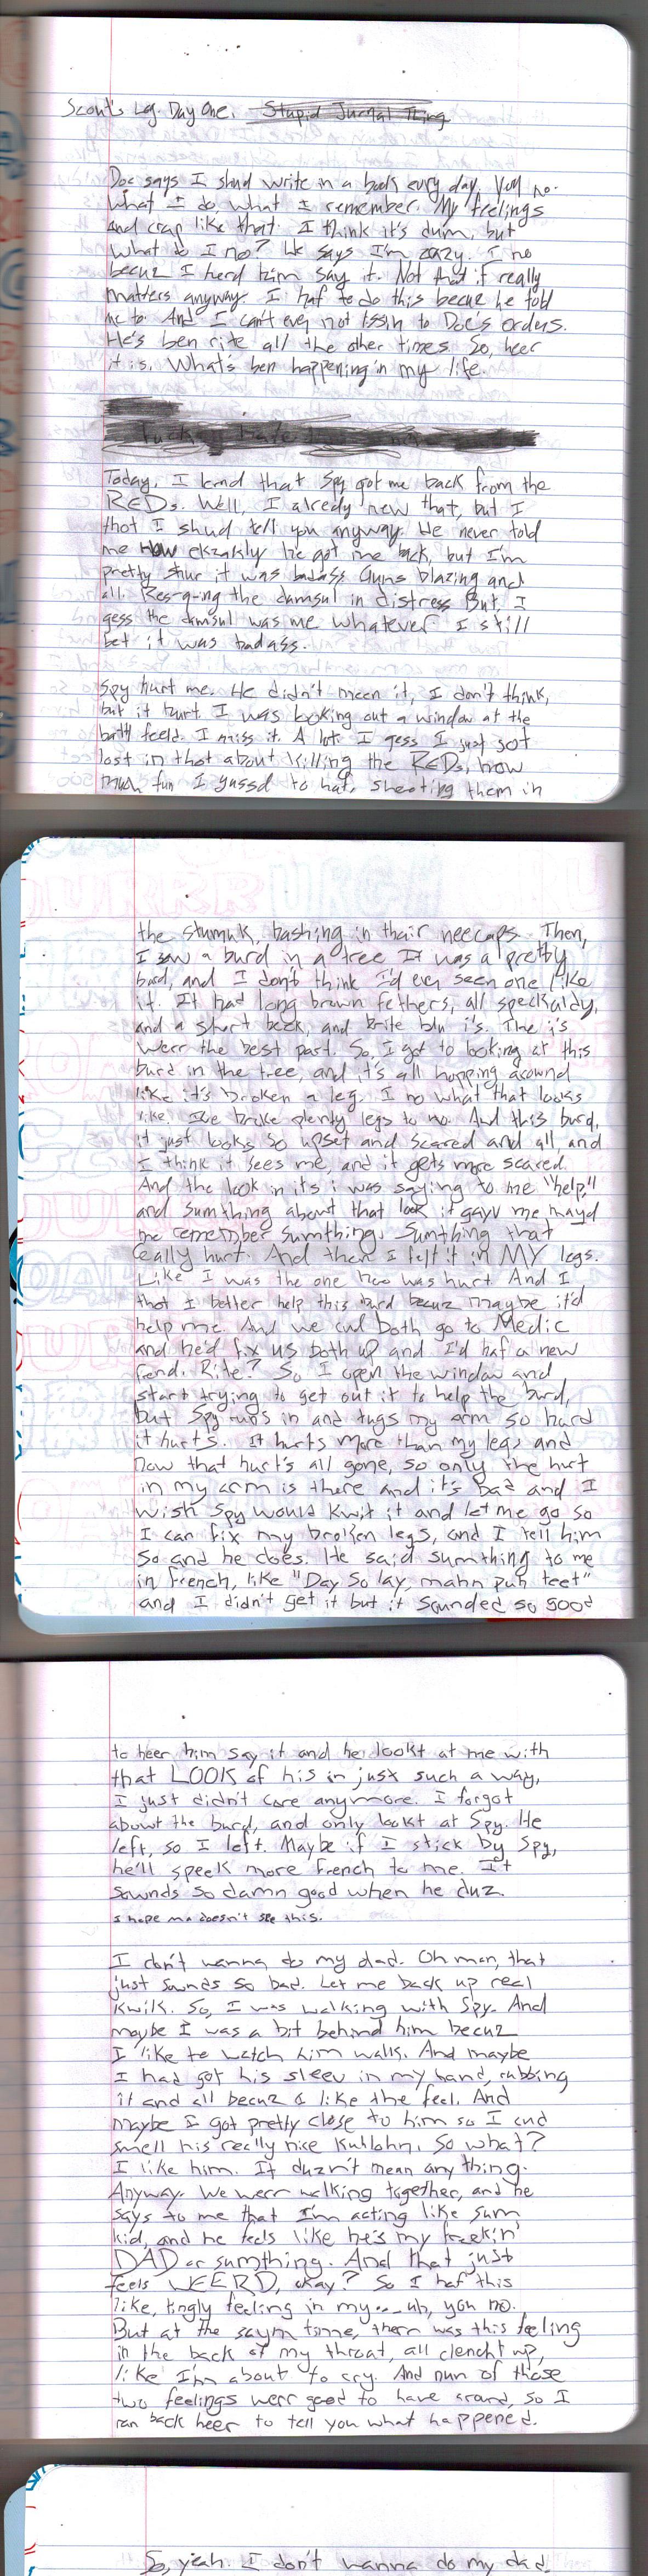 Scout's Log. Day One. Stupid Jurnal Thing
Doc says I shud write in a book evry day. Yuu no.
What I do what I remember. My feelings
and crap like that. I think it's dum, but
what do I no? He says I'm crazy. I no
becuz I herd him say it. Not that it really
matters anyway. I haf to do this becuz he told
me to. And I can't ever not lissin to Doc's orders.
He's ben rite all the other times. So, heer
it is. What's ben happening in my life.
Fuck I hate
Today, I lernd that Spy got me back from the
REDs. Well, I alredy new that, but I
thot I shud tell you anyway. He never told
me how ekzakly he got me back, but I'm
pretty shur it was badass. Guns blazing and
all. Res-q-ing the damsul in distress. But, I
gess the damsul was me. Whatever. I still
bet it was badass.
Spy hurt me. He didn't meen it, I don't think,
but it hurt. I was looking out a window at the
battl feeld. I miss it. A lot. I gess I just got
lost in thot about killing the REDs, how
much fun I yussd to haf, sheeting them in
the stumuk, bashing in thair neecaps. Then,
I saw a burd in a tree. It was a pretty
burd, and I don't think I'd ever seen one like
it. It had long brown fethers, all speckaldy,
and a short beek, and brite blu i's. The i's
werr the best part. So, I got to looking at this
burd in the tree, and it's all hopping around
like it's broken a leg. I no what that looks
like. I've broke plenty legs to no. And this burd,
it just looks so upset and scared and all and
I think it sees me, and it gets more scared.
And the look in its i was saying to me "help!"
and sumthing about that look it gayv me mayd
me remember sumthing. Sumthing that
really hurt. And then I felt it in MY legs.
Like I was the one hoo was hurt. And I
thot I better help this burd becuz maybe it'd
help me. And we cud both go to Medic
and he'd fix us both up and I'd haf a new
frend. Rite? So I open the window and
start trying to get out it to help the burd,
but Spy runs in and tugs my arm so hard
it hurts. It hurts more than my legs and
now that hurt's all gone, so only the hurt
in my arm is there and it's bad and I
wish Spy would kwit it and let me go so
I can fix my broken legs, and I tell him
so and he does. He said sumthing to me
in french, like "Day So lay, mahn puh teet"
and I didn't get it but it sounded so good
to heer him say it and he lookt at me with
that LOOK of his in just such a way,
I just didn't care anymore. I forgot
abowt the burd, and only lookt at Spy. He
left, so I left. Maybe if I stick by Spy,
he'll speek more french to me. It
sownds so damn good when he duz.
I hope ma doesn't see this.
I don't wanna do my dad. Oh man, that
just sownds so bad. Let me back up real
kwik. So, I was walking with Spy. And
maybe I was a bit behind him becuz
I like to watch him walk. And maybe
I had got his sleev in my hand, rubbing
it and all becuz I like the feel. And
maybe I got pretty close to him so I cud
smell his really nice kullohn. So what?
I like him. It duzn't mean any thing.
Anyway. We werr walking together, and he
says to me that I'm acting like sum
kid, and he feels like he's my freekin'
DAD or sumthing. And that just
feels WEERD, okay? So I haf this
like, tingly feeling in my... uh, you no.
But at the saym time, there was this feeling
in the back of my throat, all clencht up,
like I'm about to cry. And nun of those
two feelings werr good to have arand, so I
ran back heer to tell you what happened.
So, yeah. I don't wanna do my dad.